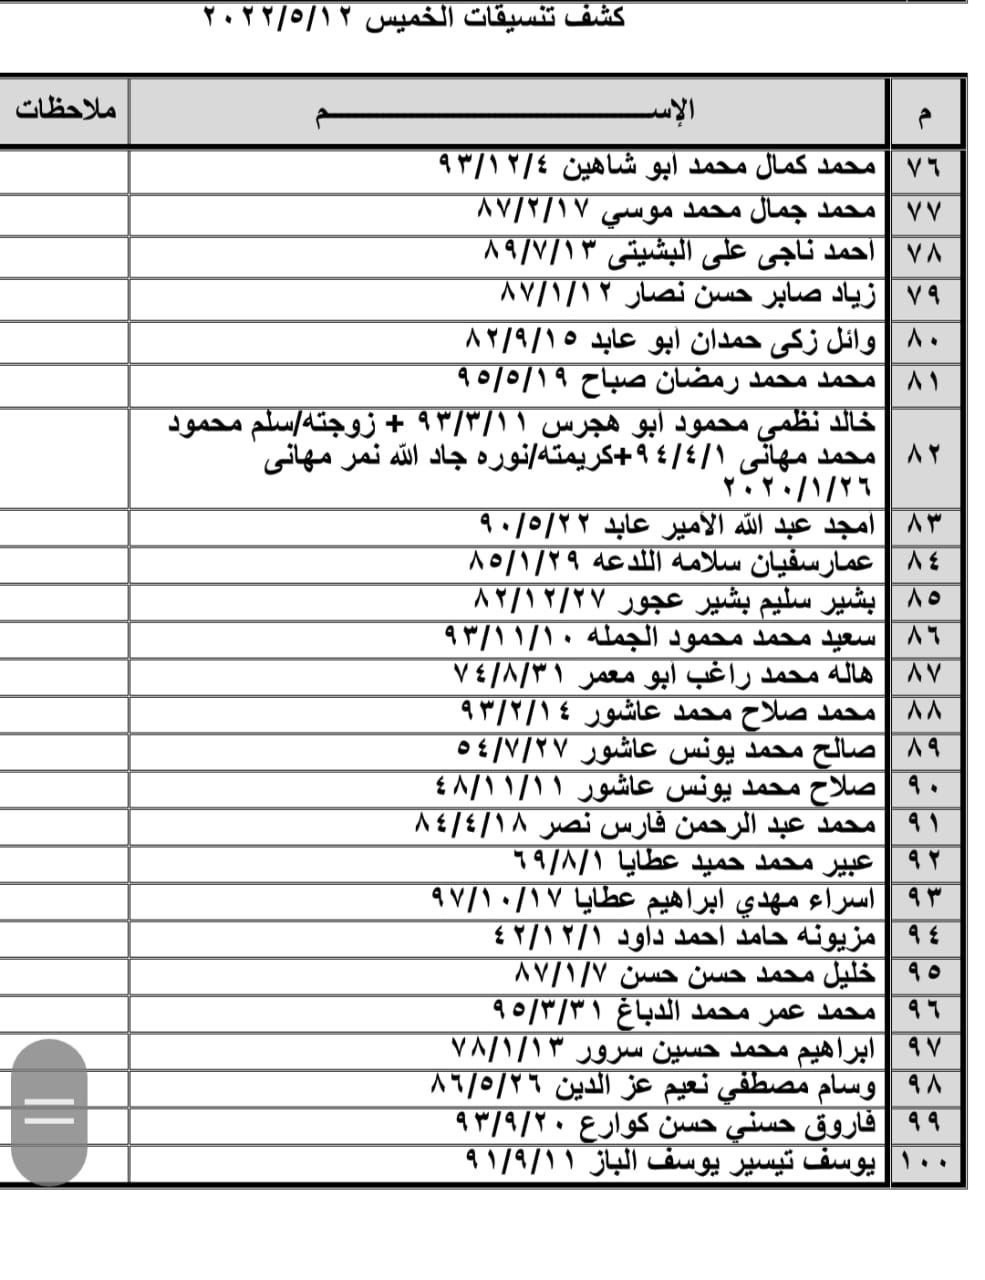 كشف تنسيقات الخميس ٢٠٢٢/٥/١٢
م الإســـــــــم ملاحظات
٧٦ محمد كمال محمد ابو شاهين ٩٣/١٢/٤
٧٧ محمد جمال محمد موسي ٨٧/٢/١٧
٧٨ احمد ناجى على البشيتى ٨٩/٧/١٣
٧٩ زياد صابر حسن نصار ٨٧/١/١٢
٨٠ وائل زكى حمدان ابو عابد ٨٢/٩/١٥
٨١ محمد محمد رمضان صباح ٩٥/٥/١٩
٨٢ خالد نظمي محمود ابو هجرس ٩٣/٣/١١ + زوجته/سلم محمود
محمد مهانى ٩٤/٤/١+كريمته/نوره جاد الله نمر مهانى
٢٠٢٠/١/٢٦
٨٣ امجد عبد الله الامير عابد ٩٠/٥/٢٢
٨٤ عمارسفيان سلامه اللدعه ٨٥/١/٢٩
٨٥ بشير سليم بشير عجور ٨٢/١٢/٢٧
٨٦ سعيد محمد محمود الجمله ٩٣/١١/١٠
٨٧ هاله محمد راغب ابو معمر ٧٤/٨/٣١
٨٨ محمد صلاح محمد عاشور ٩٣/٢/١٤
٨٩ صالح محمد يونس عاشور ٥٤/٧/٢٧
٩٠ صلاح محمد يونس عاشور ٤٨/١١/١١
٩١ محمد عبد الرحمن فارس نصر ٨٤/٤/١٨
٩٢ عبير محمد حميد عطايا ٦٩/٨/١
٩٣ اسراء مهدي ابراهيم عطايا ٩٧/١٠/١٧
٩٤ مزيونه حامد احمد داود ٤٢/١٢/١
٩٥ خليل محمد حسن حسن ٨٧/١/٧
٩٦ محمد عمر محمد الدباغ ٩٥/٣/٣١
٩٧ ابراهيم محمد حسين سرور ٧٨/١/١٣
٩٨ وسام مصطفي نعيم عز الدين ٨٦/٥/٢٦
٩٩ فاروق حسني حسن كوارع ٩٣/٩/٢٠
١٠٠ يوسف تيسير يوسف الباز ٩١/٩/١١